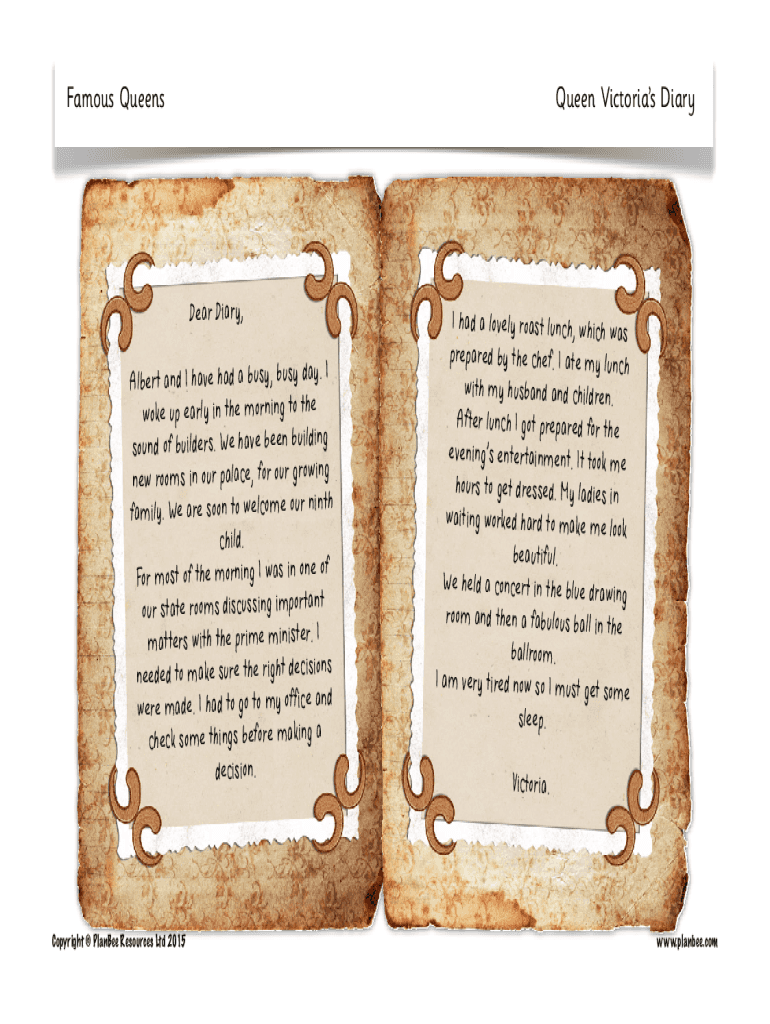 Famous Queens
Queen Victoria's Diary
Dear Diary,
Albert and I have had a busy, busy day. I
woke up early in the morning to the
sound of builders. We have been building
new rooms in our palace, for our growing
family. We are soon to welcome our ninth
child.
For most of the morning I was in one of
our state rooms discussing important
matters with the prime minister. I
needed to make sure the right decisions
were made. I had to go to my office and
check some things before making a
decision.
I had a lovely roast lunch, which was
prepared by the chef. I ate my lunch
with my husband and children.
After lunch I got prepared for the
evening's entertainment. It took me
hours to get dressed. My ladies in
waiting worked hard to make me look
beautiful.
We held a concert in the blue drawing
room and then a fabulous ball in the
ballroom.
I am very tired now so I must get some
sleep.
Victoria.
Copyright © PlanBee Resources Ltd 2015
www.planbee.com